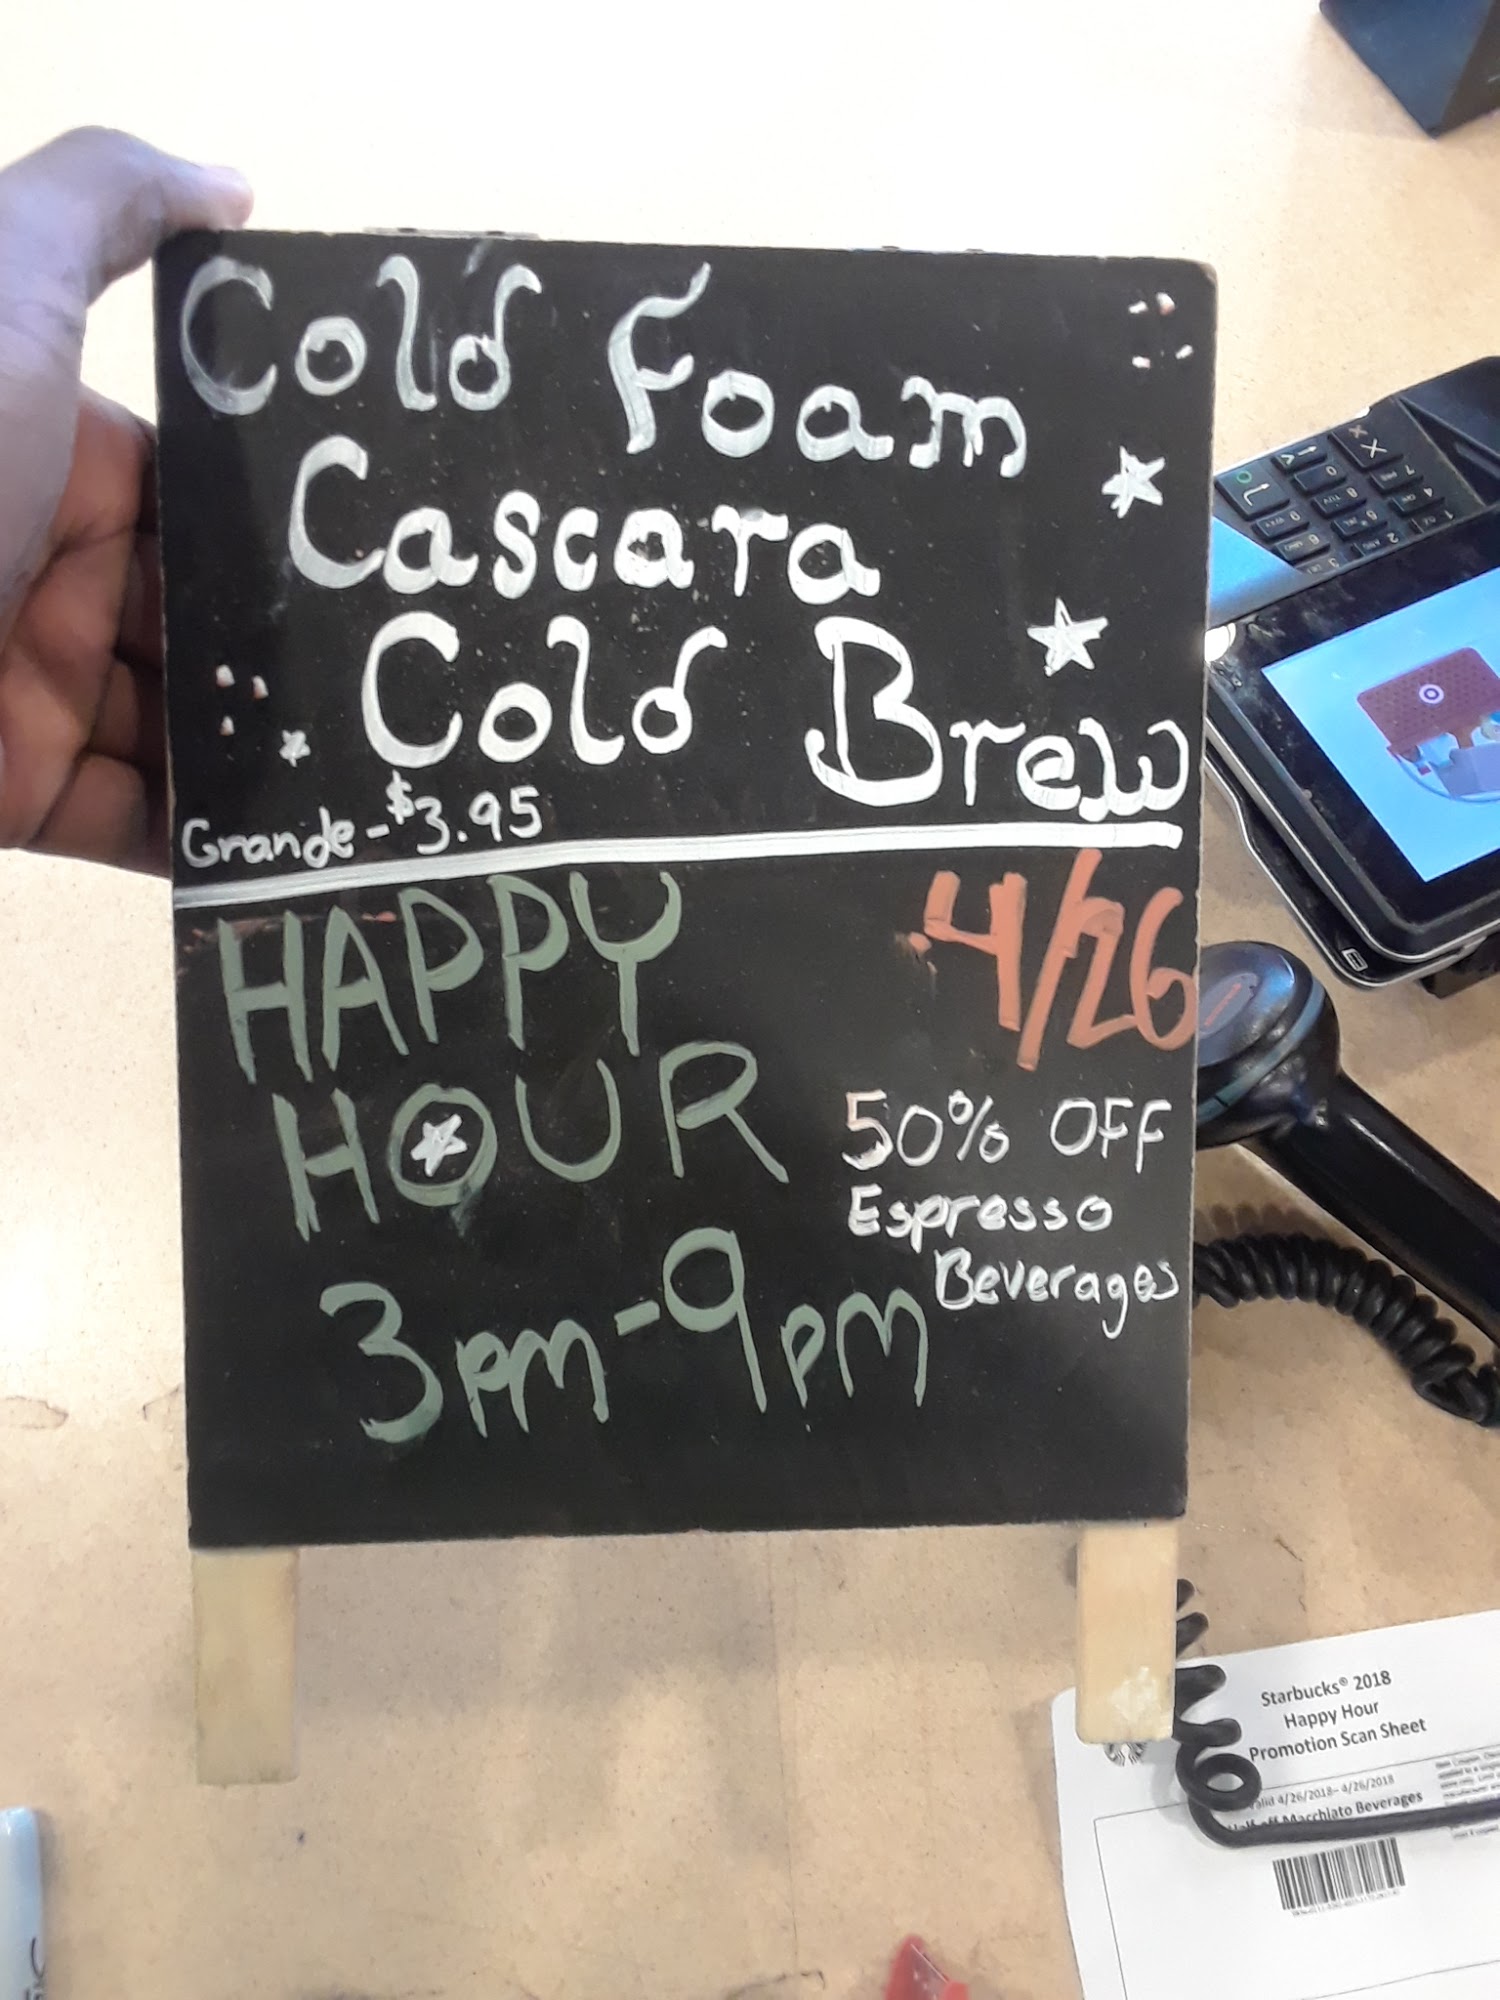 Cold Foam
Cascara
Cold Brew
Grande - $3.95
HAPPY
HOUR
3pm-9pm
4/26
50% OFF
Espresso
Beverages
Starbucks® 2018
Happy Hour
Promotion Scan Sheet
4/26/2018– 4/26/2018
Half off Macchiato Beverages